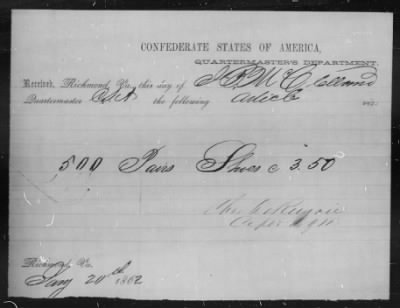 CONFEDERATE STATES OF AMERICA,
QUARTERMASTER'S DEPARTMENT.
Received, Richmond, Va., this day of J. P. McClelland
Quartermaster the following article
500 Pairs Shoes @ 3.50
Richmond, Va.
20th 1862